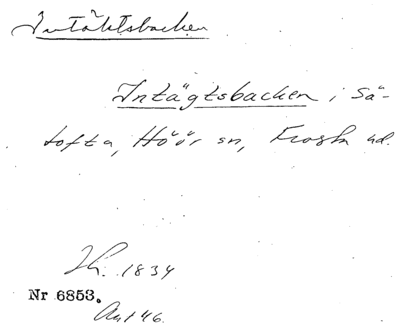 Intäktsbacken
Intägtsbacken i Sä-
tofta, Höör sn, Frosta hd.
Th. 1834
Nr 6853.
Ant 46.